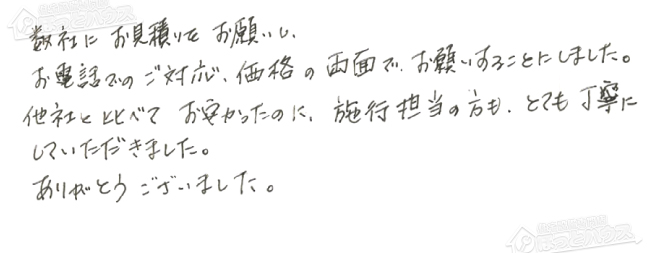 数社にお見積りをお願いし、
お電話でのご対応、価格の両面で、お願いすることにしました。
他社と比べてお安かったのに、施行担当の方も、とても丁寧に
していただきました。
ありがとうございました。